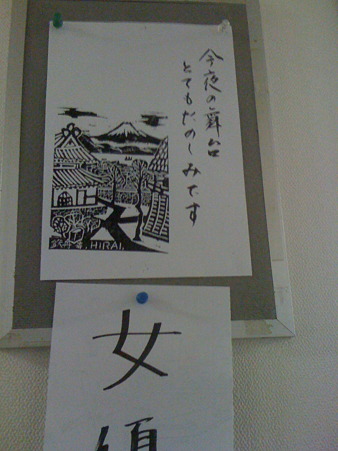 今夜の舞台
とてもたのしみです
HIRAI.
女優